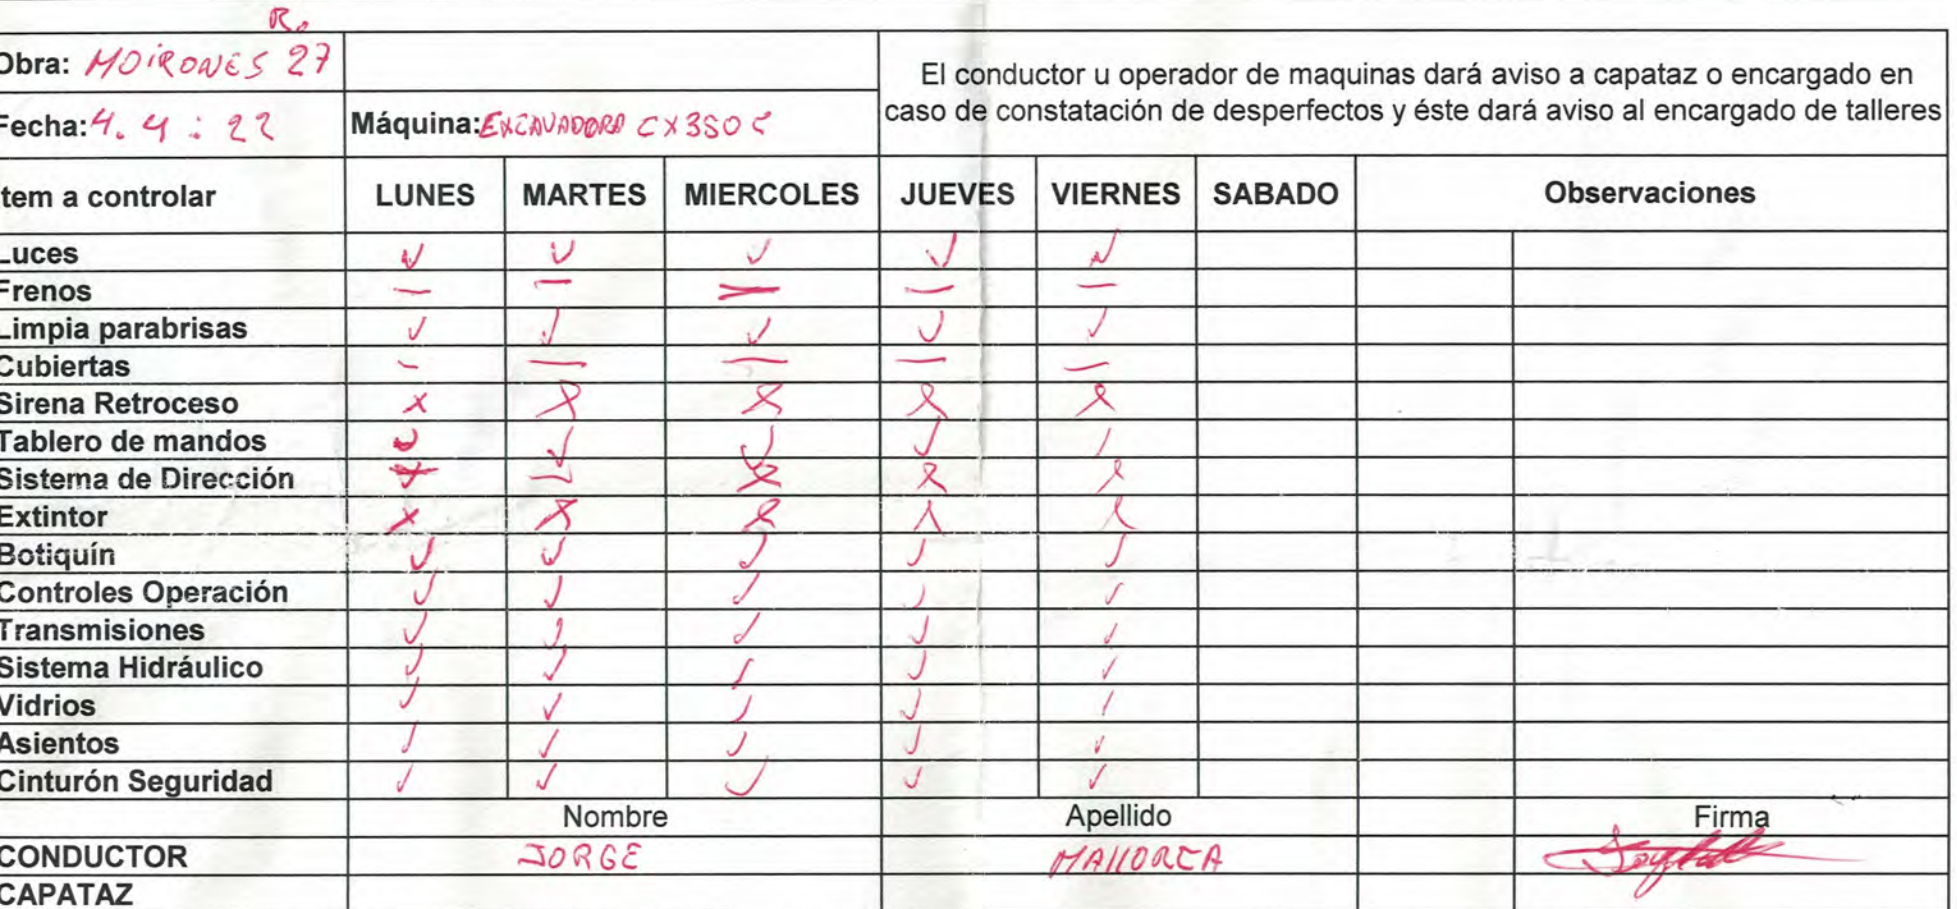 R.
Obra: MOiRONES 27
El conductor u operador de maquinas dará aviso a capataz o encargado en
caso de constatación de desperfectos y éste dará aviso al encargado de talleres
Fecha: 4. 4 : 22 Máquina: EXCAVADORA CX350C
Item a controlar LUNES MARTES MIERCOLES JUEVES VIERNES SABADO Observaciones
Luces ✓ ✓ ✓ ✓ ✓
Frenos — — — — —
Limpia parabrisas ✓ ✓ ✓ ✓ ✓
Cubiertas — — — — —
Sirena Retroceso X X X X X
Tablero de mandos ✓ ✓ ✓ ✓ ✓
Sistema de Dirección X X X X
Extintor X X X X X
Botiquín ✓ ✓ ✓ ✓ ✓
Controles Operación ✓ ✓ ✓ ✓ ✓
Transmisiones ✓ ✓ ✓ ✓ ✓
Sistema Hidráulico ✓ ✓ ✓ ✓ ✓
Vidrios ✓ ✓ ✓ ✓ ✓
Asientos ✓ ✓ ✓ ✓ ✓
Cinturón Seguridad ✓ ✓ ✓ ✓ ✓
Nombre Apellido Firma
CONDUCTOR JORGE MAllORCA
CAPATAZ